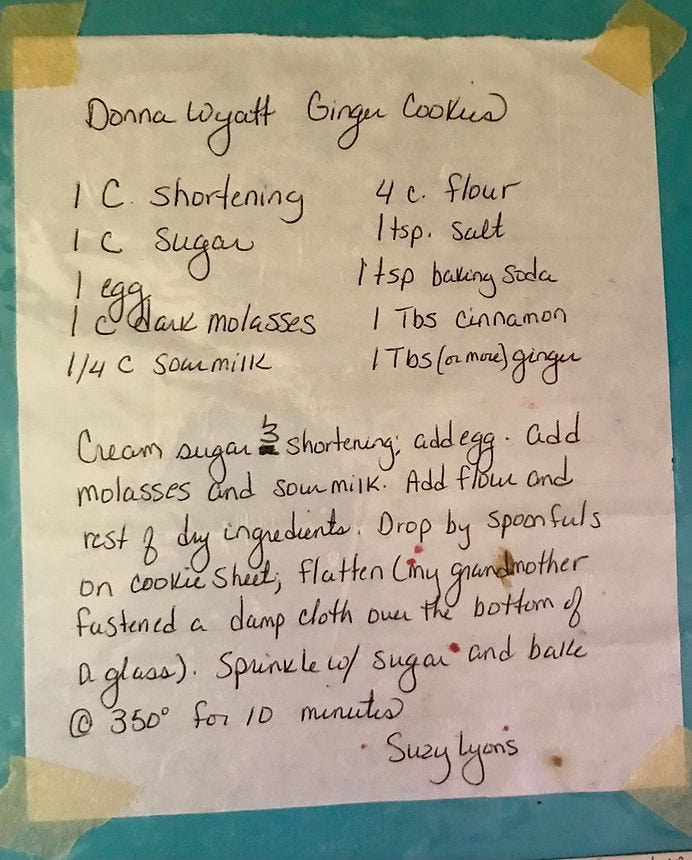 Donna Wyatt Ginger Cookies
1 C. shortening
1 C sugar
1 egg
1 c dark molasses
1/4 C sour milk
4 c. flour
1 tsp. salt
1 tsp baking soda
1 Tbs cinnamon
1 Tbs (or more) ginger
Cream sugar & shortening; add egg. Add
molasses and sour milk. Add flour and
rest of dry ingredients. Drop by spoonfuls
on cookie sheet; flatten (my grandmother
fastened a damp cloth over the bottom of
a glass). Sprinkle w/ sugar and bake
@ 350° for 10 minutes
Suzy Lyons